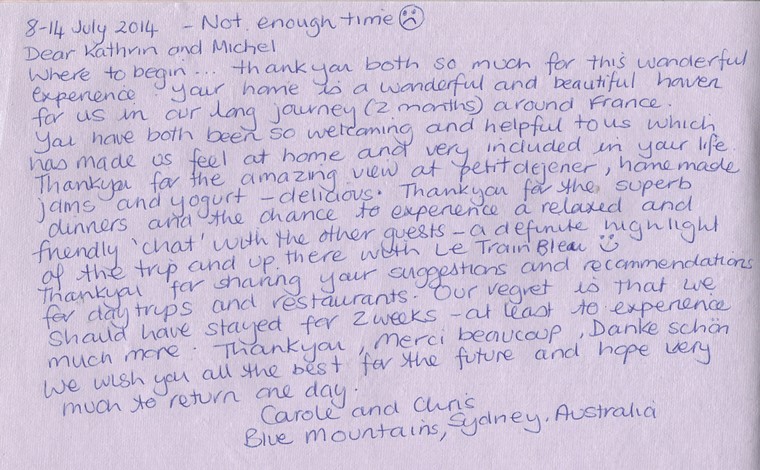 8-14 July 2014 - Not enough time ☹
Dear Kathrin and Michel
Where to begin... thankyou both so much for this wonderful
experience. Your home is a wonderful and beautiful haven
for us in our long journey (2 months) around France.
You have both been so welcoming and helpful to us which
has made us feel at home and very included in your life.
Thankyou for the amazing view at petit dejener, homemade
jams and yogurt - delicious. Thankyou for the superb
dinners and the chance to experience a relaxed and
friendly 'chat' with the other guests - a definite highlight
of the trip and up there with Le Train Bleau ☺
Thankyou for sharing your suggestions and recommendations
for day trips and restaurants. Our regret is that we
should have stayed for 2 weeks - at least to experience
much more. Thankyou, Merci beaucoup, Danke schön
We wish you all the best for the future and hope very
much to return one day.
Carole and Chris
Blue Mountains, Sydney, Australia